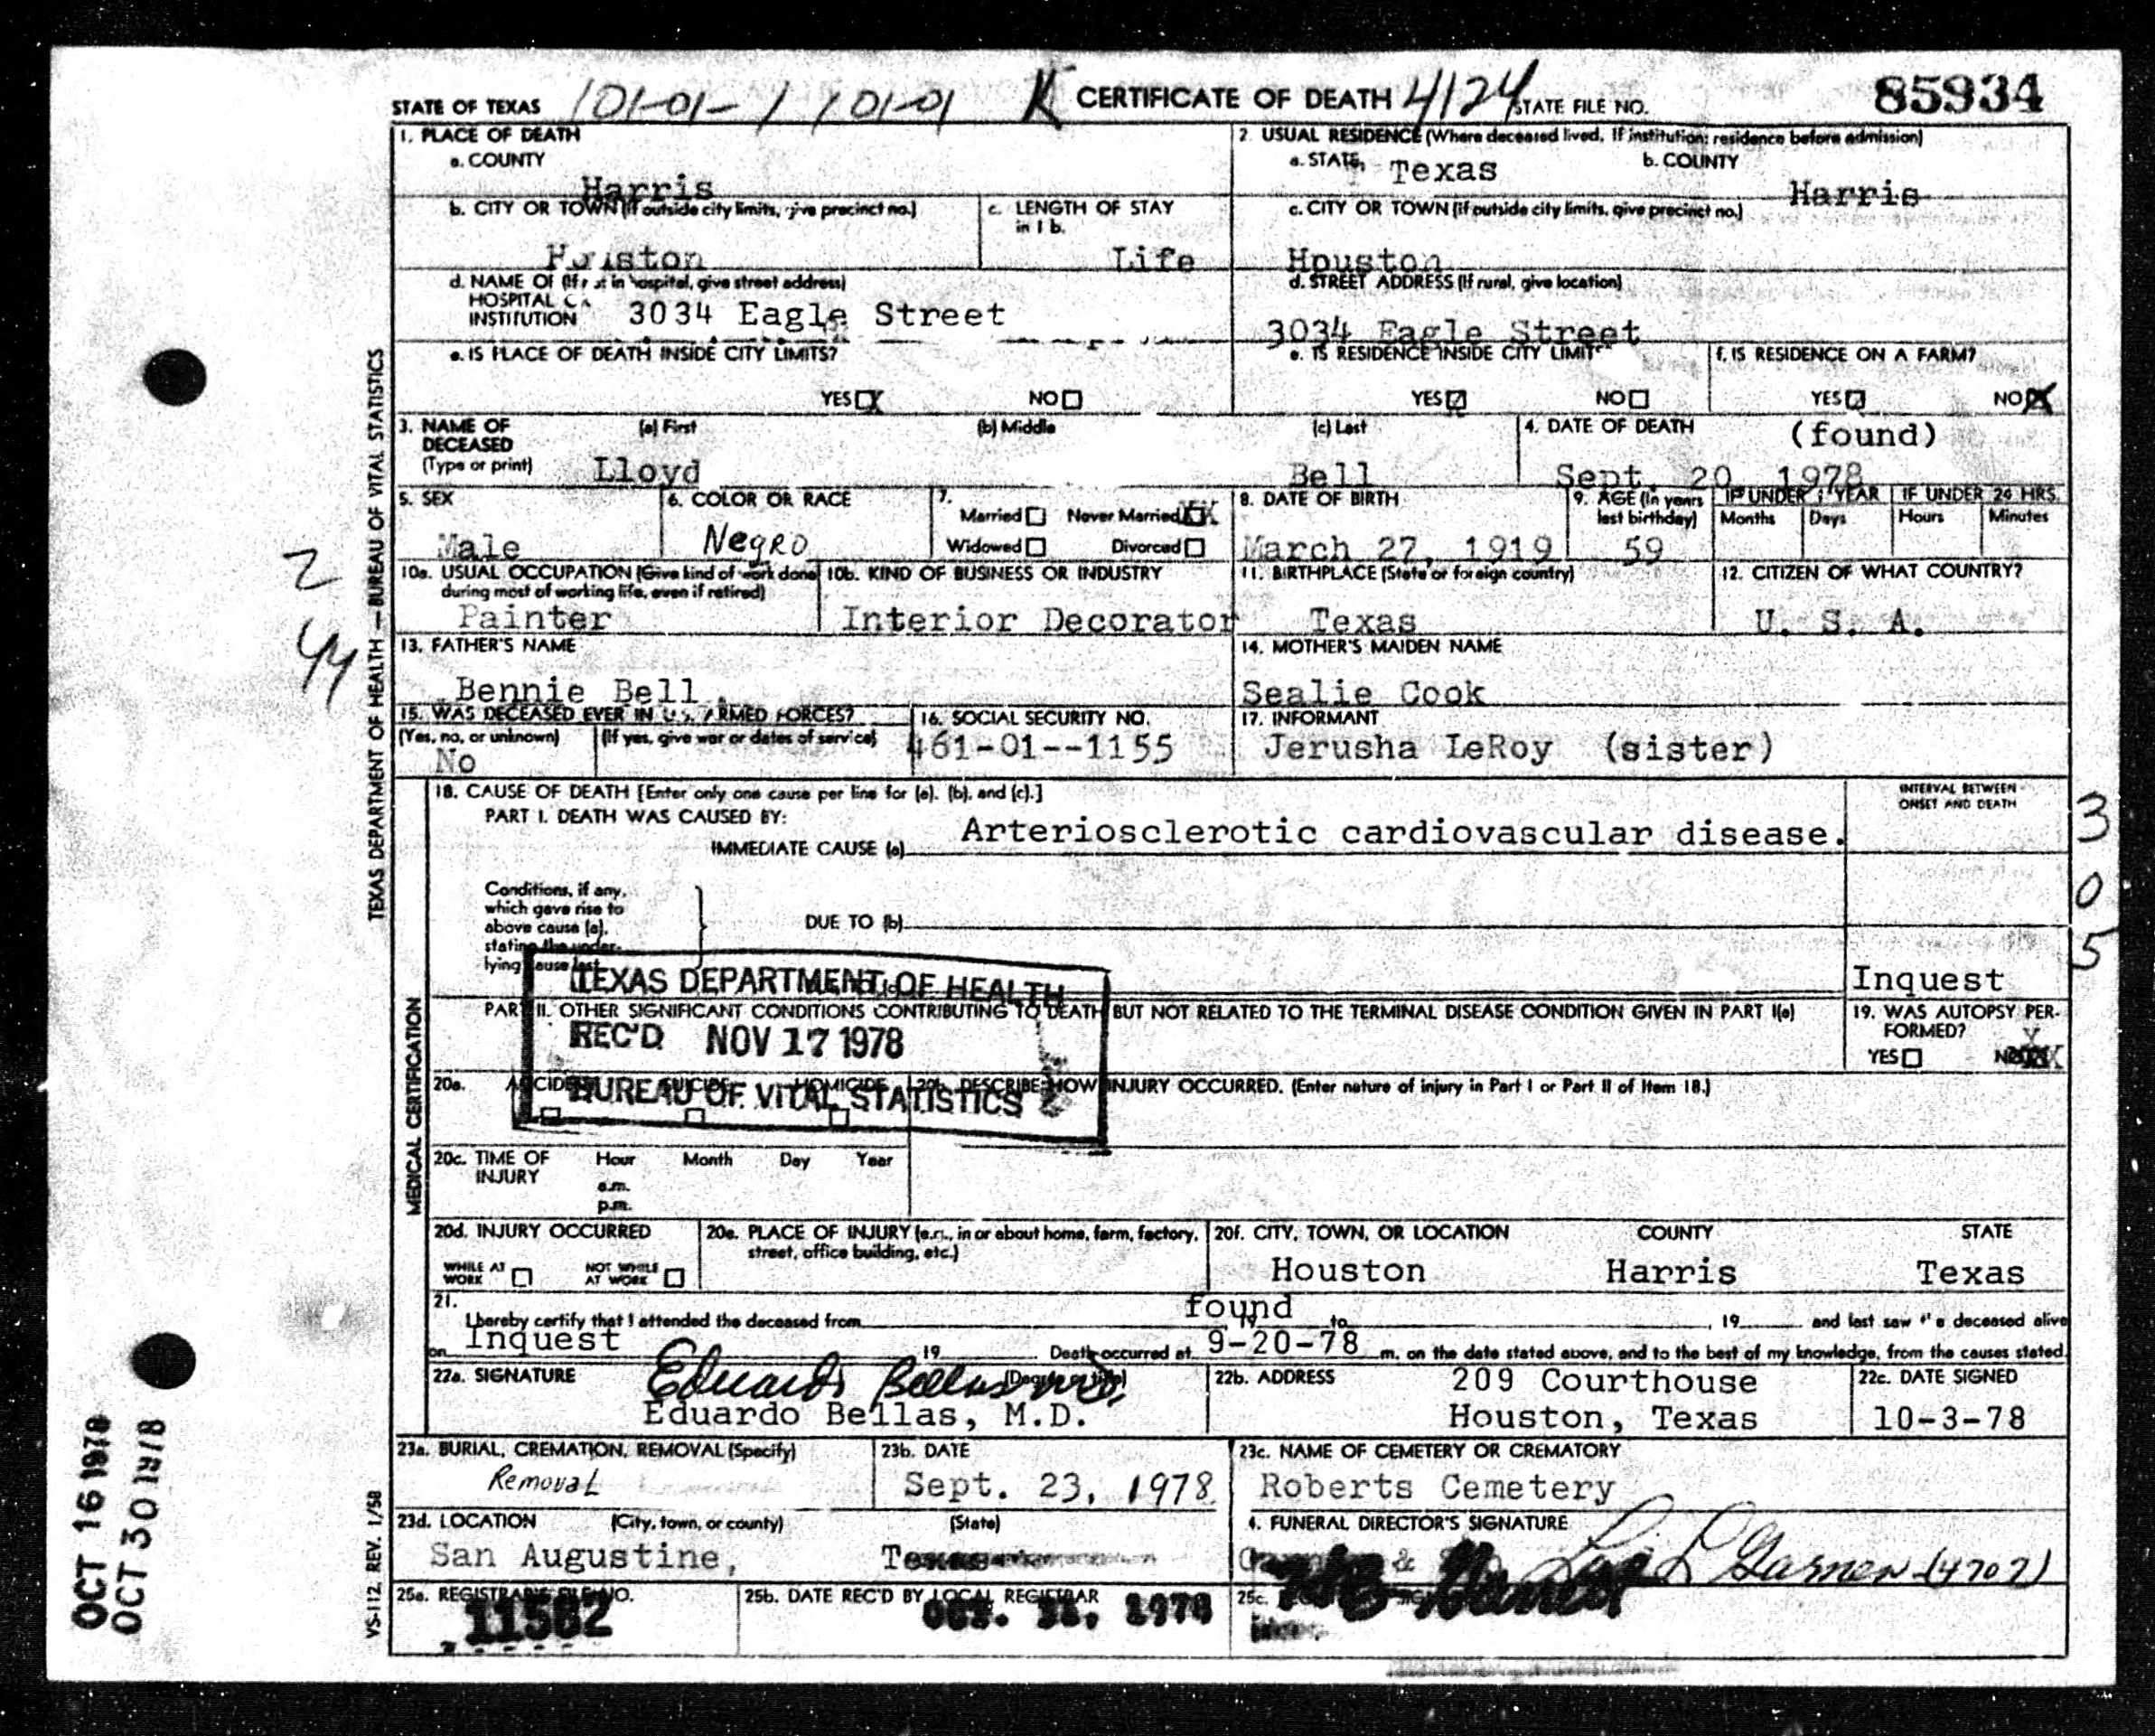 STATE OF TEXAS 101-01-1 101-01 K CERTIFICATE OF DEATH 4124 STATE FILE NO. 85934
1. PLACE OF DEATH
a. COUNTY
Harris
2. USUAL RESIDENCE (Where deceased lived. If institution: residence before admission)
a. STATE Texas b. COUNTY
Harris
b. CITY OR TOWN (If outside city limits, give precinct no.)
Houston
c. LENGTH OF STAY
in 1 b.
Life
c. CITY OR TOWN (If outside city limits, give precinct no.)
Houston
d. NAME OF (If not in hospital, give street address)
HOSPITAL OR
INSTITUTION 3034 Eagle Street
d. STREET ADDRESS (If rural, give location)
3034 Eagle Street
e. IS PLACE OF DEATH INSIDE CITY LIMITS?
YES X NO
e. IS RESIDENCE INSIDE CITY LIMITS
YES NO
f. IS RESIDENCE ON A FARM?
YES NO X
3. NAME OF
DECEASED
(Type or print)
(a) First (b) Middle (c) Last
Lloyd Bell
4. DATE OF DEATH (found)
Sept. 20, 1978
5. SEX
Male
6. COLOR OR RACE
Negro
7.
Married Never Married XX
Widowed Divorced
8. DATE OF BIRTH
March 27, 1919
9. AGE (In years
last birthday)
59
IF UNDER 1 YEAR IF UNDER 24 HRS.
Months Days Hours Minutes
10a. USUAL OCCUPATION (Give kind of work done
during most of working life, even if retired)
Painter
10b. KIND OF BUSINESS OR INDUSTRY
Interior Decorator
11. BIRTHPLACE (State or foreign country)
Texas
12. CITIZEN OF WHAT COUNTRY?
U. S. A.
13. FATHER'S NAME
Bennie Bell
14. MOTHER'S MAIDEN NAME
Sealie Cook
15. WAS DECEASED EVER IN U.S. ARMED FORCES?
(Yes, no, or unknown) (If yes, give war or dates of service)
No
16. SOCIAL SECURITY NO.
461-01--1155
17. INFORMANT
Jerusha LeRoy (sister)
18. CAUSE OF DEATH [Enter only one cause per line for (a), (b), and (c).]
PART I. DEATH WAS CAUSED BY:
IMMEDIATE CAUSE (a) Arteriosclerotic cardiovascular disease.
INTERVAL BETWEEN
ONSET AND DEATH
Conditions, if any,
which gave rise to
above cause (a),
stating the under-
lying cause last.
DUE TO (b)
Inquest
TEXAS DEPARTMENT OF HEALTH
REC'D NOV 17 1978
BUREAU OF VITAL STATISTICS
PART II. OTHER SIGNIFICANT CONDITIONS CONTRIBUTING TO DEATH BUT NOT RELATED TO THE TERMINAL DISEASE CONDITION GIVEN IN PART I(a)
19. WAS AUTOPSY PER-
FORMED?
YES NO
20a. ACCIDENT SUICIDE HOMICIDE
20b. DESCRIBE HOW INJURY OCCURRED. (Enter nature of injury in Part I or Part II of Item 18.)
20c. TIME OF
INJURY
Hour Month Day Year
a.m.
p.m.
20d. INJURY OCCURRED
WHILE AT
WORK
NOT WHILE
AT WORK
20e. PLACE OF INJURY (e.g., in or about home, farm, factory,
street, office building, etc.)
20f. CITY, TOWN, OR LOCATION COUNTY STATE
Houston Harris Texas
21.
I hereby certify that I attended the deceased from found 19 to , 19 and last saw the deceased alive
on Inquest 19 Death occurred at 9-20-78 m. on the date stated above, and to the best of my knowledge, from the causes stated.
22a. SIGNATURE (Degree or title)
Eduardo Bellas M.D.
Eduardo Bellas, M.D.
22b. ADDRESS 209 Courthouse
Houston, Texas
22c. DATE SIGNED
10-3-78
23a. BURIAL, CREMATION, REMOVAL (Specify)
Removal
23b. DATE
Sept. 23, 1978
23c. NAME OF CEMETERY OR CREMATORY
Roberts Cemetery
23d. LOCATION (City, town, or county) (State)
San Augustine, Texas
4. FUNERAL DIRECTOR'S SIGNATURE
Garner (4702)
25a. REGISTRAR'S FILE NO.
11562
25b. DATE REC'D BY LOCAL REGISTRAR
1978
25c.
TEXAS DEPARTMENT OF HEALTH — BUREAU OF VITAL STATISTICS
MEDICAL CERTIFICATION
VS-112, REV. 1/58
2
44
3
0
5
OCT 16 1978
OCT 30 1978